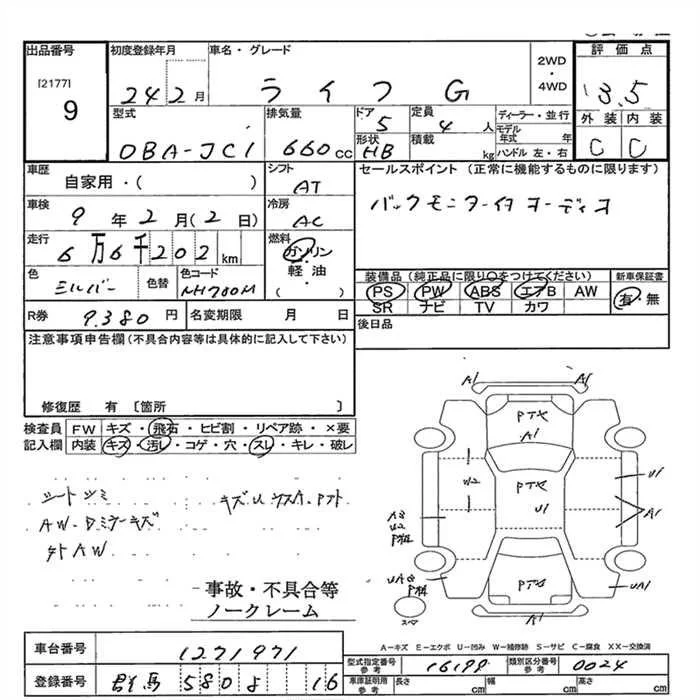 出品番号 初度登録年月 車名・グレード 2WD・4WD 評価点
[2177]
9 24 2月 ライフ G 3.5
型式 排気量 ドア 定員 ディーラー・並行 外装 内装
DBA-JC1 660cc 5 4人 モデル年式 年 C C
形状 積載 kg ハンドル 左・右
HB
車歴 シフト セールスポイント (正常に機能するものに限ります)
自家用・( ) AT
車検 9年2月(2日) 冷房 AC バックモニター付オーディオ
走行 6万6千202km 燃料 ガソリン・軽油・( )
色 シルバー 色替 色コード NH700M
装備品(純正品に限り○をつけてください) 新車保証書
PS PW ABS エアB AW 有・無
SR ナビ TV カワ
R券 9.380円 名変期限 月 日 後日品
注意事項申告欄(不具合内容等は具体的に記入して下さい)
修復歴 有 〔箇所 〕
検査員記入欄 FW キズ・飛石・ヒビ割・リペア跡・×要
内装 キズ・汚レ・コゲ・穴・スレ・キレ・破レ
シートシミ
AW
外AW
事故・不具合等
ノークレーム
A1 A1
Pテカ
A1
W2 Pテカ U1
U1 A1
A2
U2
UA1
スペア
A-キズ E-エクボ U-凹み W-補修跡 S-サビ C-腐食 XX-交換済
車台番号 1271971
型式指定番号 参考 16199 類別区分番号 参考 0024
登録番号 群馬 580 よ 16
車庫証明用 参考 長さ cm 幅 cm 高さ cm